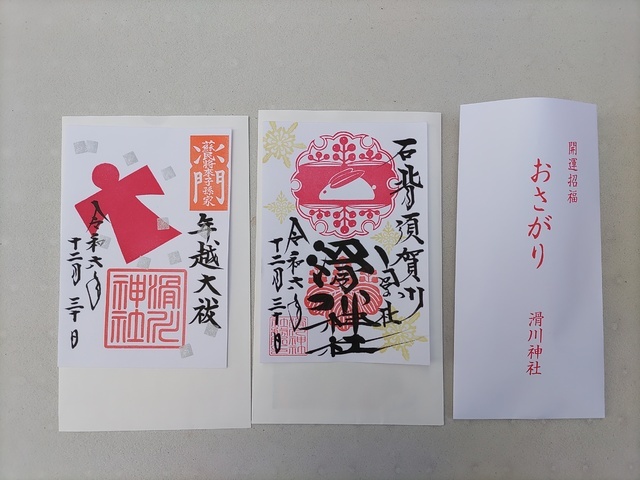 蘇民将来子孫家
門
年越大祓
滑川
神社
令和六年
十二月三十日
石背 須賀川
滑川神社
令和六年
十二月三十日
開運招福
おさがり
滑川神社